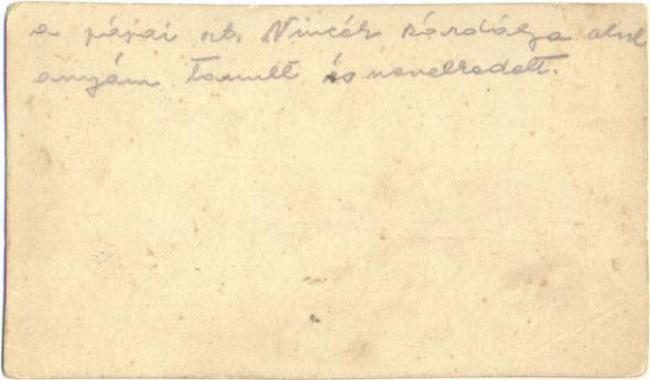 a pápai szt. Vincék zárdája ahol
anyám tanult és nevelkedett.